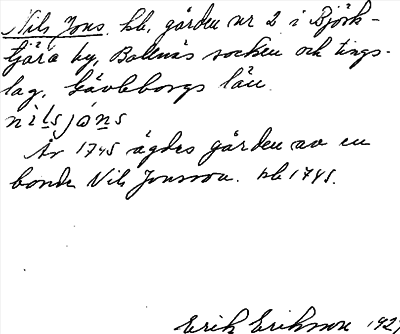 Nils Jons hb. gården nr 2 i Björk-
tjära by, Bollnäs socken och tings-
lag, Gävleborgs län.
nilsjóns
År 1745 ägdes gården av en
bonde Nils Jonsson. hb 1745.
Erik Eriksson 192